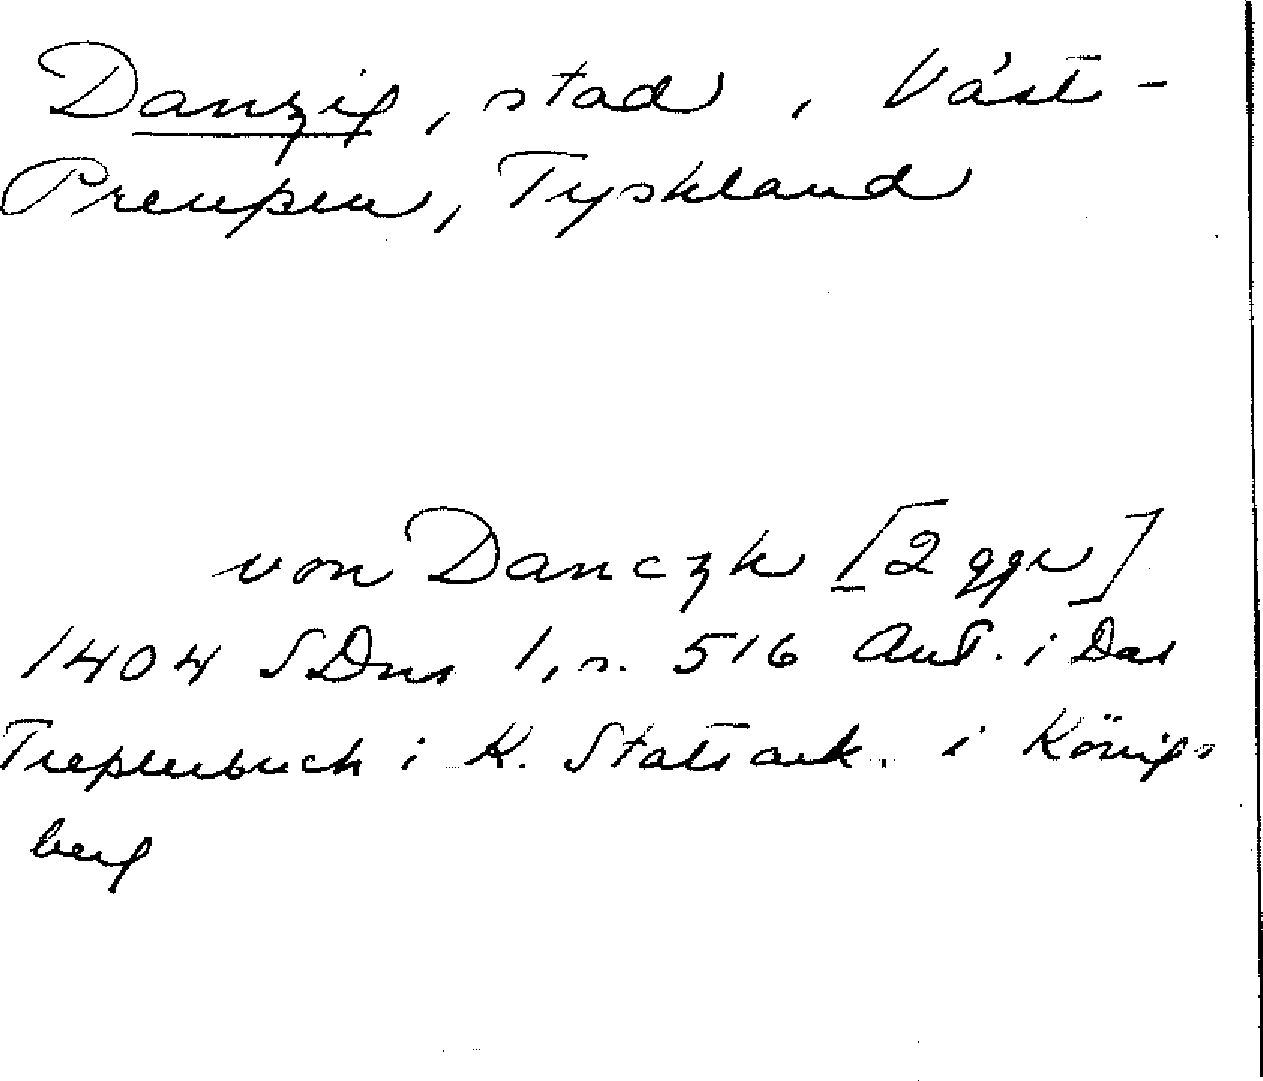 Danzig, stad, Väst-
Preußen, Tyskland
von Danczk [2 ggr]
1404 SDns 1, s. 516 Ant. i Das
Tresslerbuch i K. Statsark. i Königs
berg